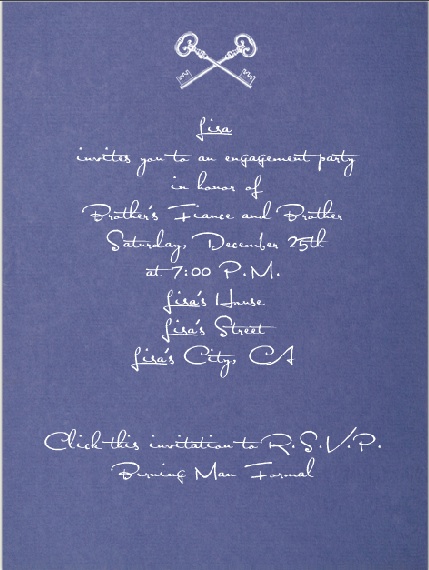 Lisa
invites you to an engagement party
in honor of
Brother's Fiance and Brother
Saturday, December 25th
at 7:00 P.M.
Lisa's House
Lisa's Street
Lisa's City, CA
Click this invitation to R.S.V.P.
Burning Man Formal